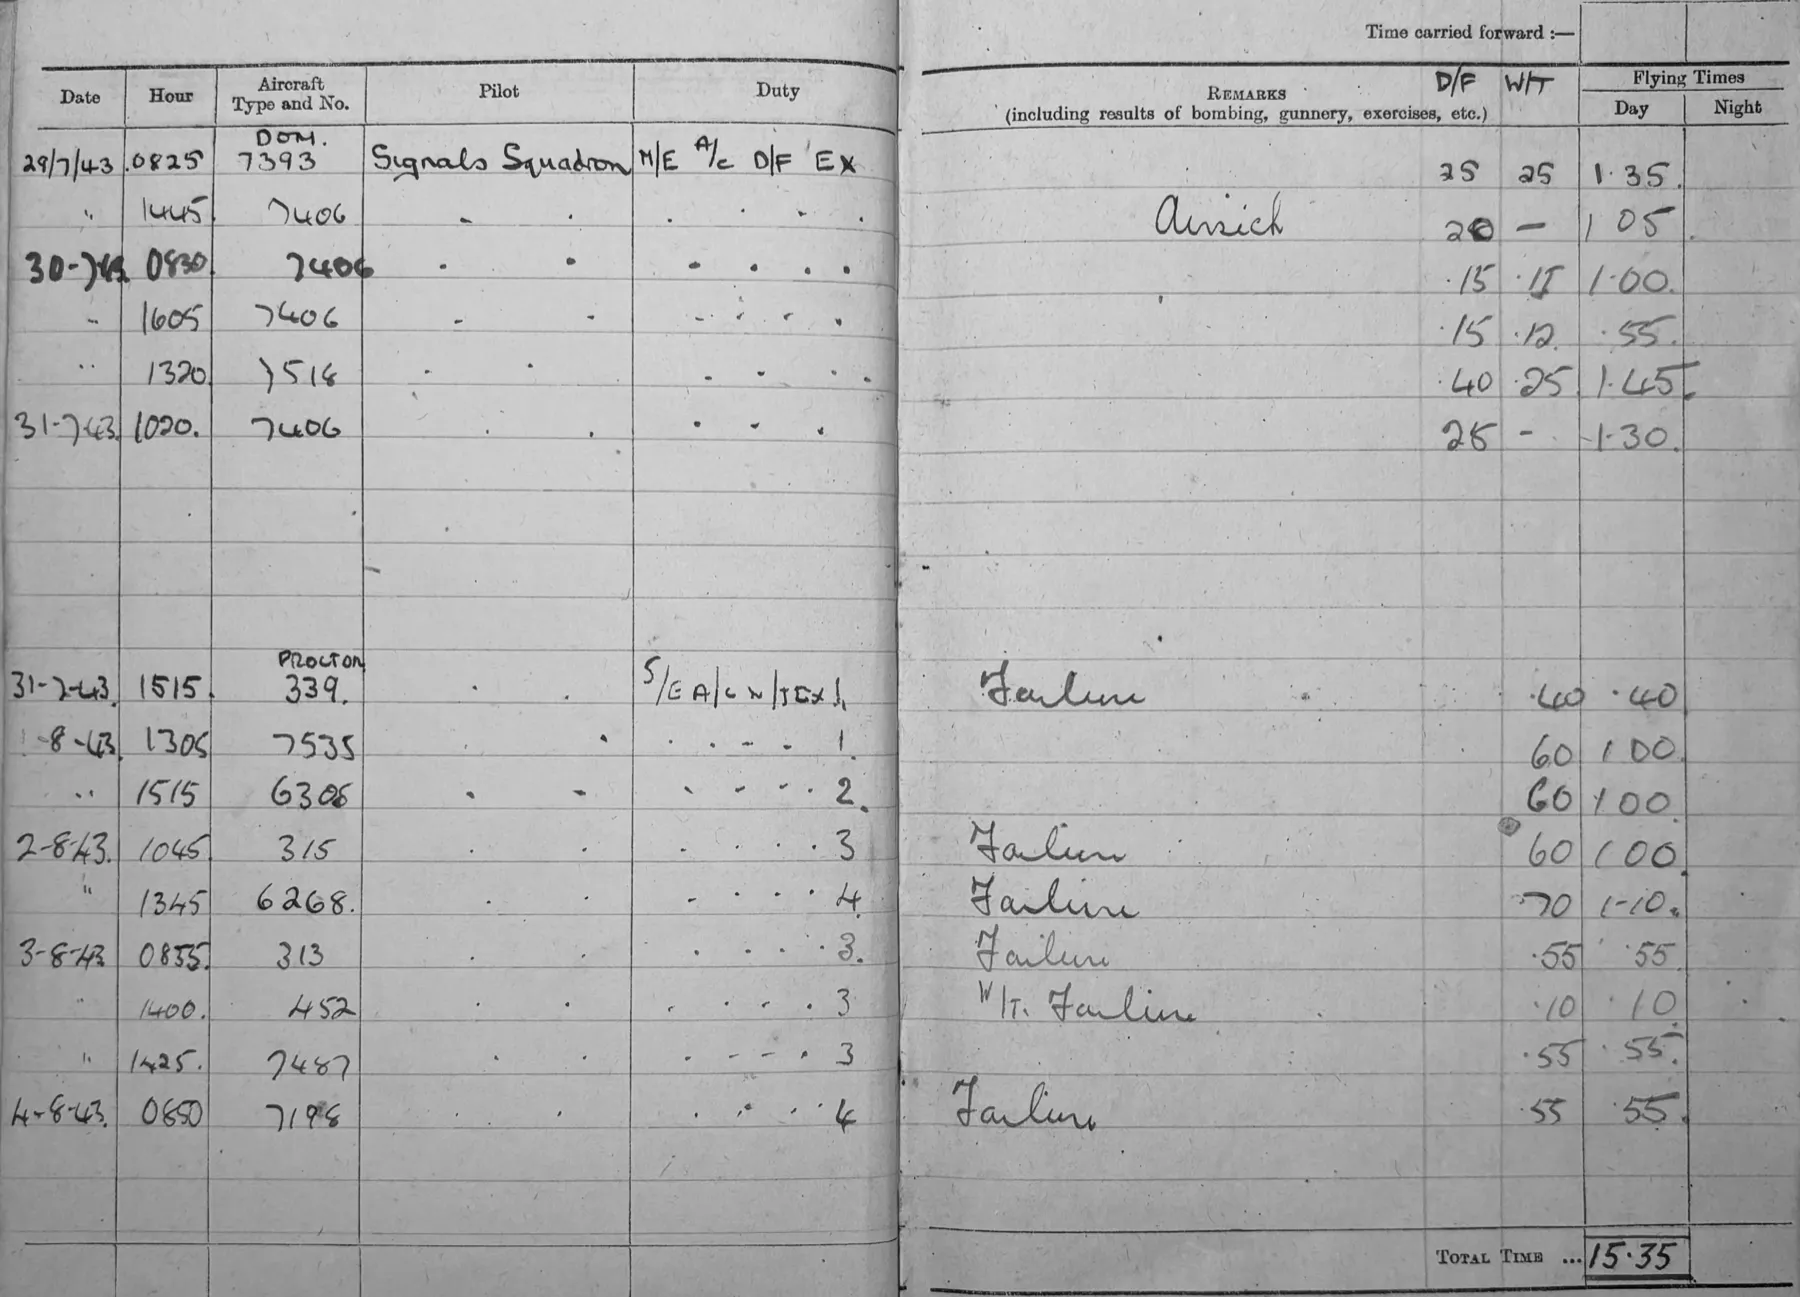 Time carried forward :—
Date Hour Aircraft Type and No. Pilot Duty REMARKS (including results of bombing, gunnery, exercises, etc.) D/F W/T Flying Times
Day Night
DOM.
29/7/43 0825 7393 Signals Squadron M/E A/C D/F EX 25 25 1.35.
" 1445 7406 - . . . - . Airsick 20 — 1 05
30-7-43 0830 7406 . . - . . . .15 .15 1.00.
" 1605 7406 - - - . . . .15 .12 .55.
" 1320 7518 . . . . . . .40 .25 1.45.
31-7-43. 1020. 7406 . . . . . 25 - 1.30.
PROCTOR
31-7-43. 1515. 339. . . S/E A/C W/T EX 1. Failure .40 .40
1-8-43 1305 7535 . . . . - - 1. 60 1 00
" 1515 6305 . - . - . . 2. 60 1 00.
2-8-43. 1045 315 . . . . . . 3 Failure 60 1 00
" 1345 6268. . . - . . . 4. Failure .70 1-10.
3-8-43 0835. 313 . . . . . . 3. Failure .55 .55
" 1400. 452 . . . . . . 3 W/T. Failure .10 .10
" 1425. 7487 . . . - - . 3 .55 .55.
4-8-43. 0850 7198 . . . . . . 4 Failure .55 .55.
TOTAL TIME ... 15.35